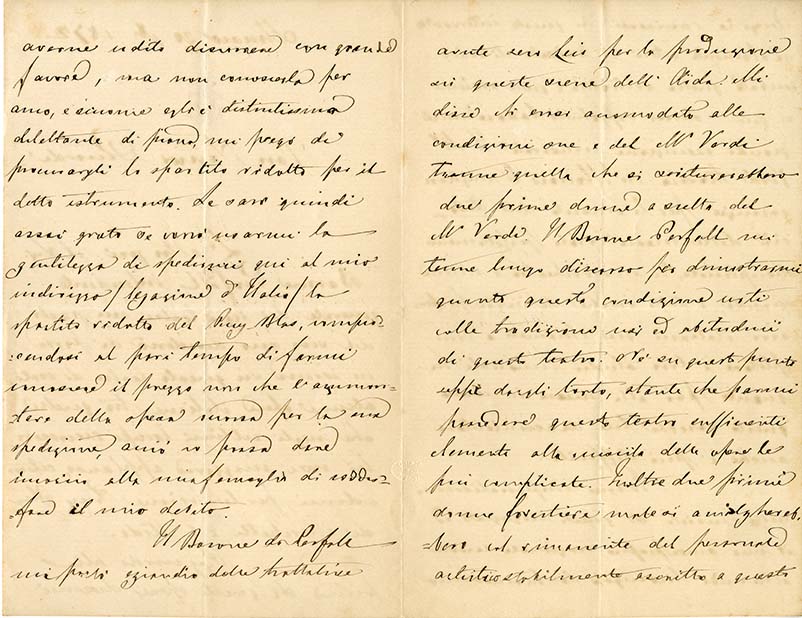 averne udito discorrere con grande
favore, ma non conoscerla per
anco, e siccome egli è distintissimo
dilettante di piano, mi pregò di
procurargli lo spartito ridotto per il
detto istrumento. Le sarò quindi
assai grato se vorrà usarmi la
gentilezza di spedirmi qui al mio
indirizzo /legazione d'Italia/ lo
spartito ridotto del Ruy Blas, compia-
-cendosi al pari tempo di farmi
conoscere il prezzo non che l'ammon-
-tare della spesa per la sua
spedizione, acciò io possa dare
incarico alla mia famiglia di soddis-
-fare il mio debito.
Il Barone de Perfall
mi parlò eziandio delle trattative
avute con Lei per la produzione
su queste scene dell'Aida. Mi
disse di essersi accomodato alle
condizioni sue e del Mº Verdi
tranne quella che si scritturerebbero
due prime donne a scelta del
Mº Verdi. Il Barone Perfall mi
tenne lungo discorso per dimostrarmi
quanto questa condizione urti
colle tradizioni usi ed abitudini
di questo teatro. Nè su questo punto
seppi dargli torto, stante che parmi
possedere questo teatro sufficienti
elementi alla riuscita delle opere le
più complicate. Inoltre due prime
donne forestiere male si amalghereb-
-bero col rimanente del personale
artistico stabilmente ascritto a questo